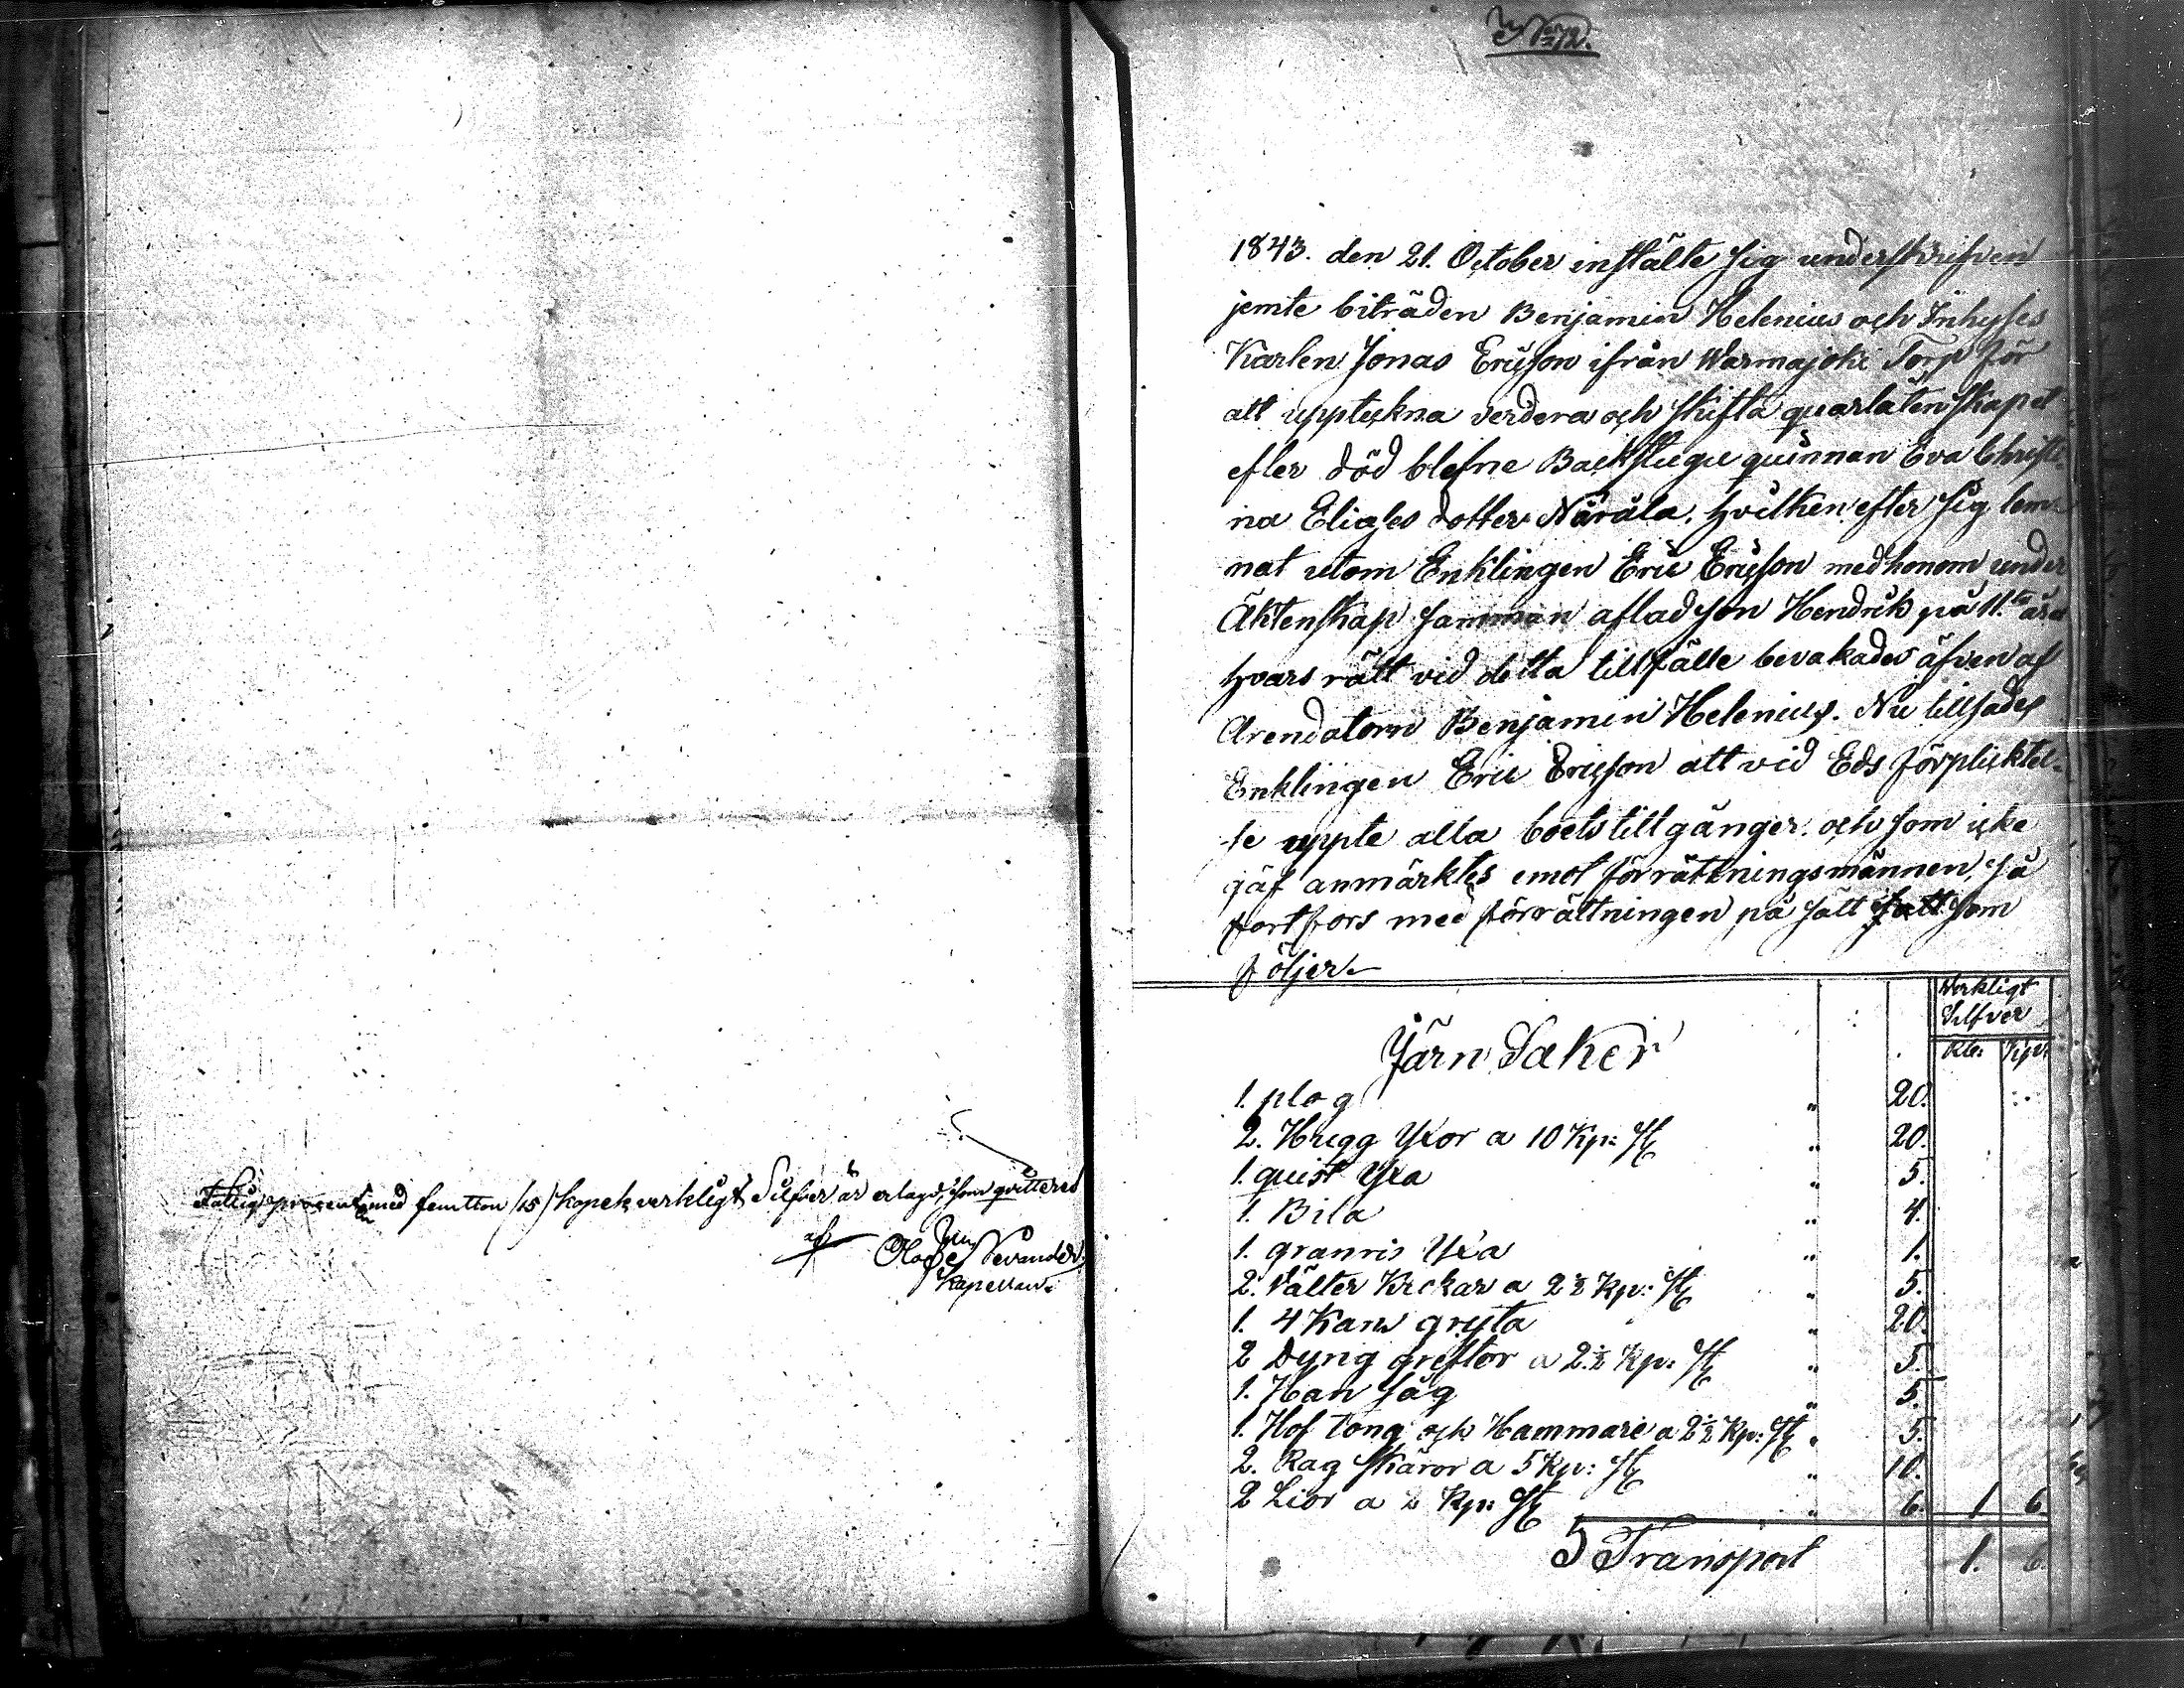 Fattig procenten med femtton /15/ kopek verkligt Silfver är erlagd, som qvitteras
af Olof Nevander
Kapellan.
1843. den 21. October instälte sig underskrifven
jemte biträden Benjamin Helenius och Inhyses
Karlen Jonas Ericson ifrån Warmajoki Torp för
att upptekna verdera och skifta quarlåtenskapet
efter död blefne Backstugu quinnan Eva Christi-
na Eliases dotter Närälä. hvilken efter sig lem-
nat utom Enklingen Eric Ericson med honom under
Äktenskap samman aflad son Hendrik på 11.te åra
hvars rätt vid detta tillfälle bevakades äfven af
Arendatorn Benjamin Helenius. Nu tillsades
Enklingen Eric Ericson att vid Eds förplicktel-
se uppte alla boets tillgånger. och som icke
gäf anmärktes emot förrättningsmännen, så
fortfors med förrättningen på sätt satt som
följer.
Werkligt
Silfver
Järn Saker Rbl. Kop.
1. plog " 20.
2. Hugg Yxor a 10 Kp: St " 20.
1. quist Yxa " 5.
1. Bila " 4.
1. granris Yxa " 1.
2. Välter Krokar a 2½ Kp: St " 5.
1. 4 Kans gryta " 20.
2 Dyng greftor a 2½ Kp: St " 5.
1. Han Såg " 5.
1. Hof tong och Hammare a 2½ Kp: St " 5.
2. Rag Skäror a 5 Kp: St " 10.
2 Lior a Kp: St " 6. 1 6.
Transport 1. 6.